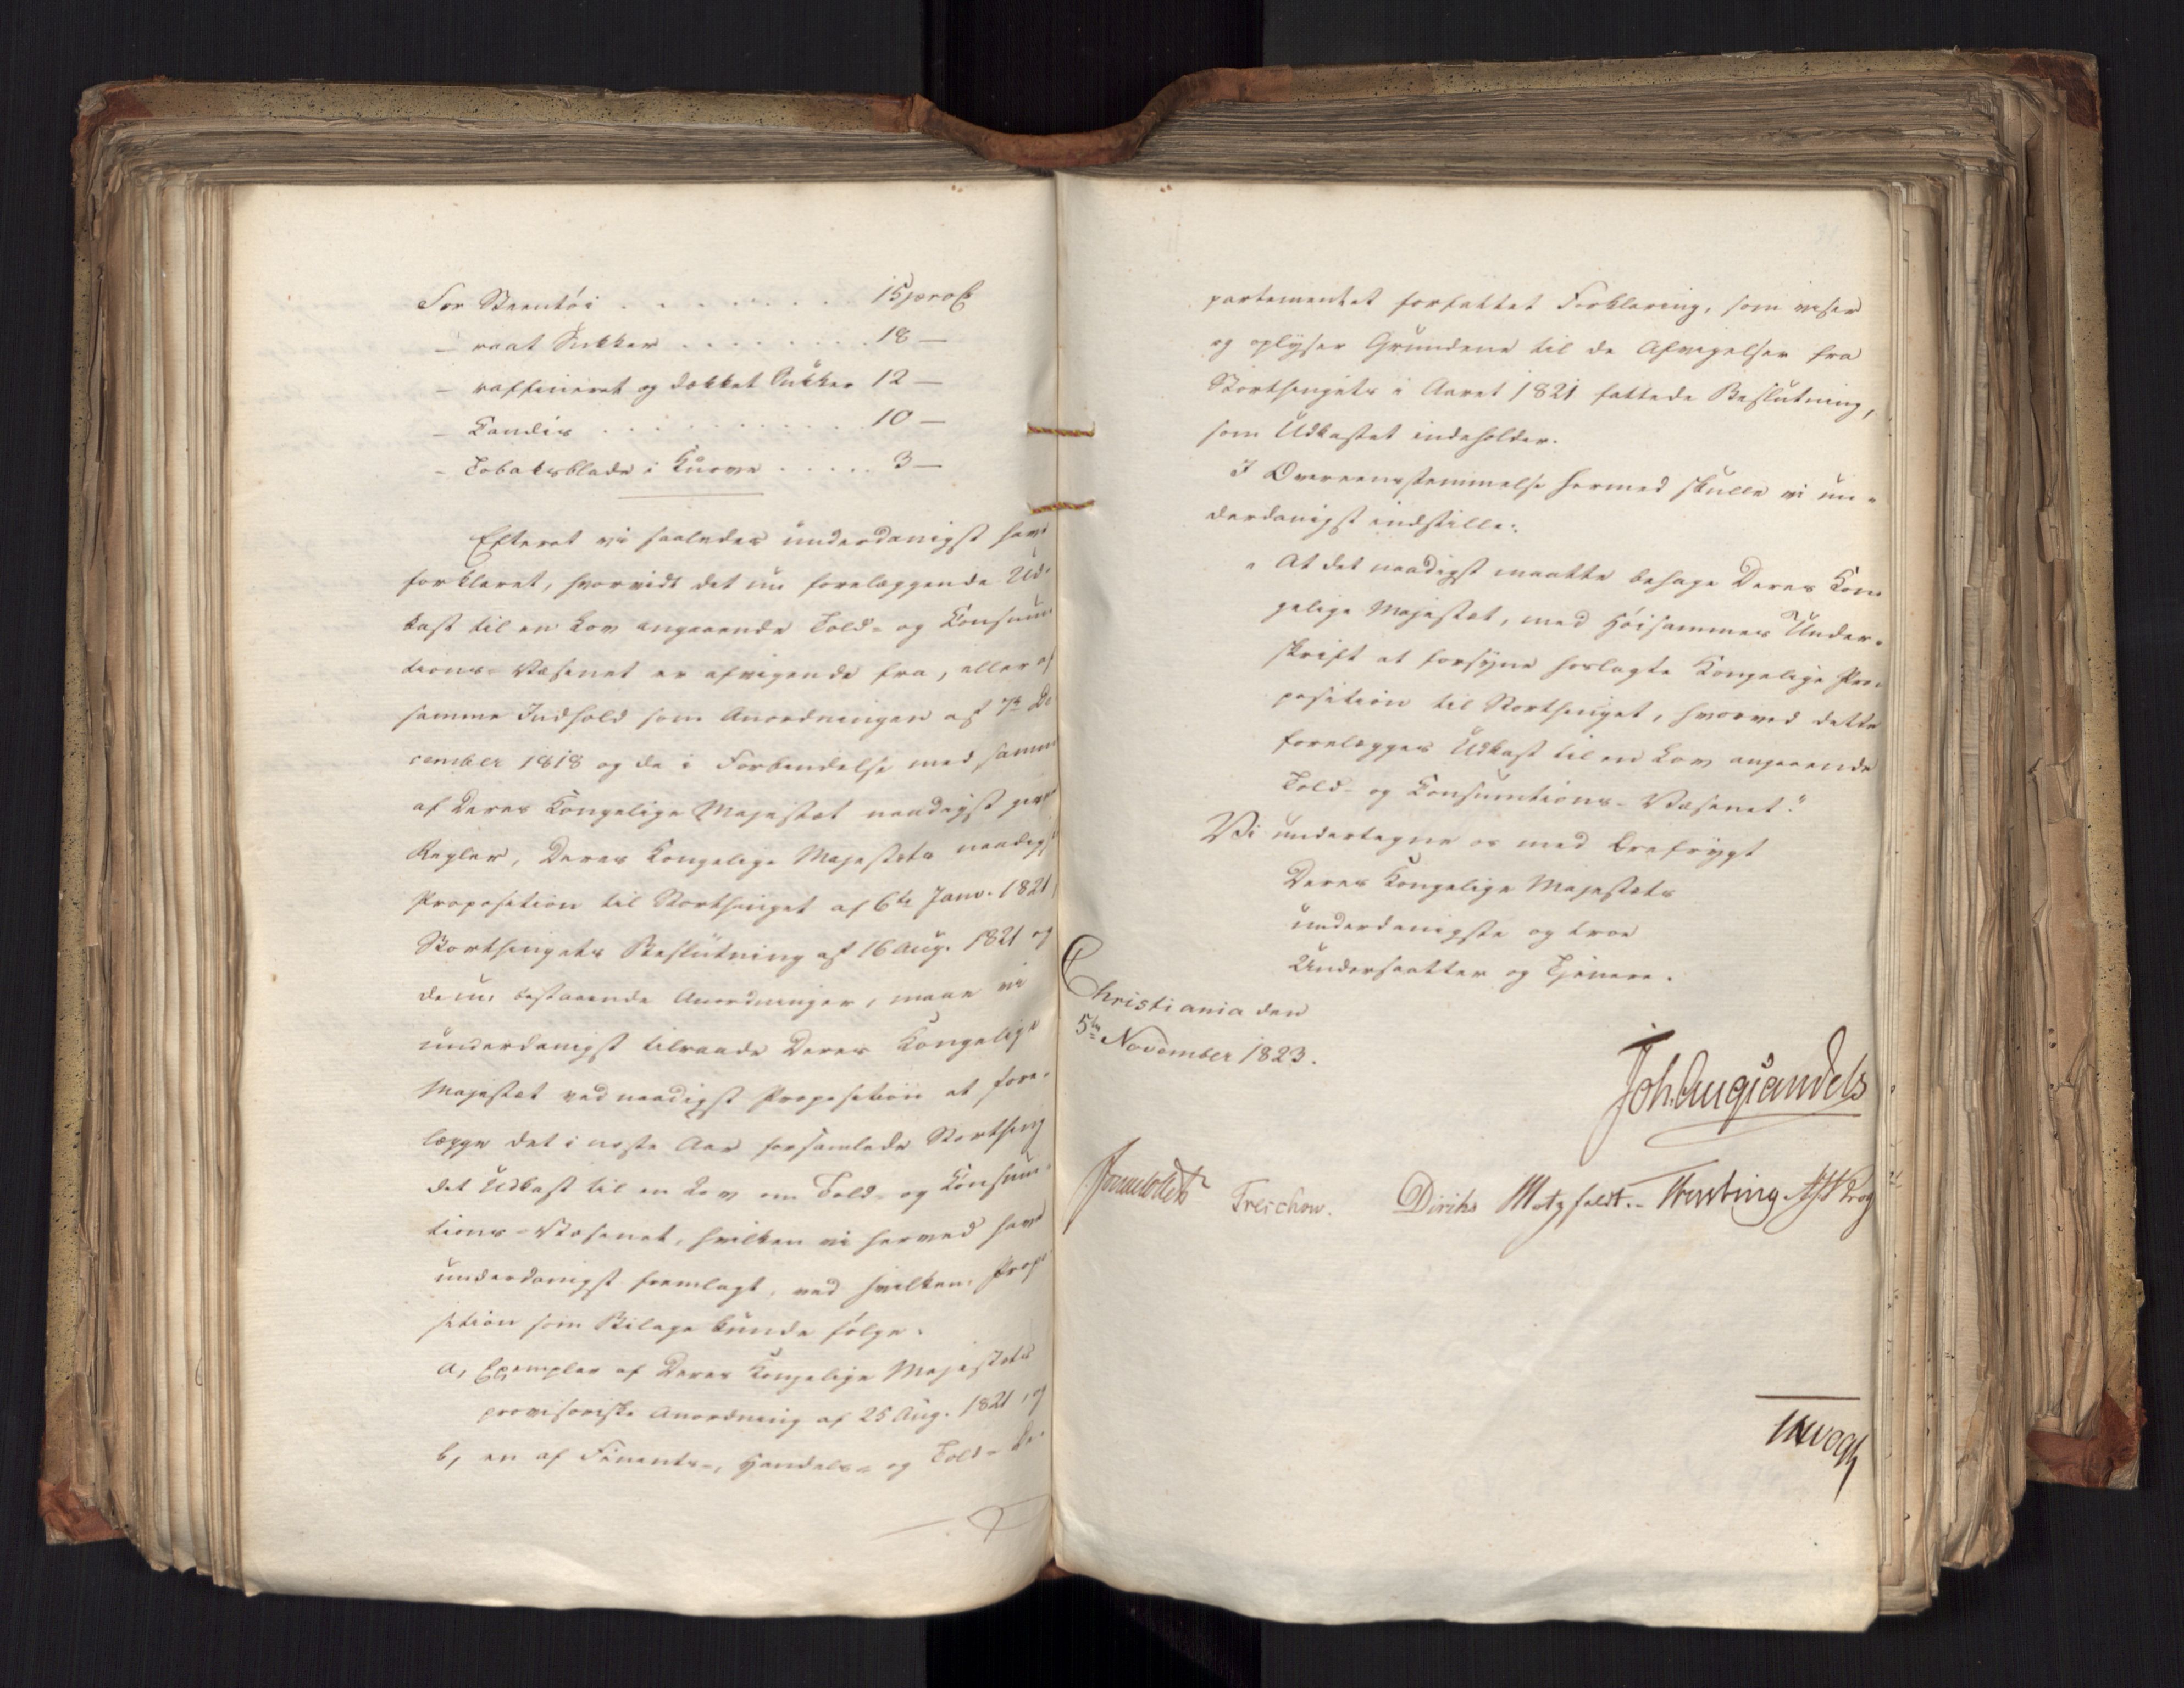 For Steentöi . . . . . . . . 15 proCt
— raat Sukker . . . . . . . 18 —
— raffineret og dækket Sukker 12 —
— Candis . . . . . . . . . . 10 —
— Tobaksblade i Kurve . . . . . 3 —
Efterat vi saaledes underdanigst have
forklaret, hvorvidt det nu forelæggende Ud-
kast til en Lov angaaende Told- og Consum-
tions-Væsenet er afvigende fra, eller af
samme Indhold som Anordningen af 7de De
cember 1818 og de i Forbindelse med samme
af Deres Kongelige Majestæt naadigst givne
Regler, Deres Kongelige Majestæts naadigste
Proposition til Storthinget af 6te Janv. 1821,
Storthingets Beslutning af 16 Aug. 1821 og
de nu bestaaende Anordninger, maae vi
underdanigst tilraade Deres Kongelige
Majestæt ved naadigst Proposition at fore-
lægge det i næste Aar forsamlede Storthing
det Udkast til en Lov om Told- og Consum-
tions-Væsenet, hvilken vi herved have
underdanigst fremlagt, ved hvilken Propo
sition som Bilage kunde følge:
a, Exemplar af Deres Kongelige Majestæts
provisoriske Anordning af 25 Aug. 1821, og
b, en af Finants-, Handels- og Told-De-
partementet forfattet Forklaring, som viser
og oplyser Grundene til de Afvigelser fra
Storthingets i Aaret 1821 fattede Beslutning,
som Udkastet indeholder.
I Overeensstemmelse hermed skulle vi un-
derdanigst indstille:
" At det naadigst maatte behage Deres Kon
gelige Majestæt, med Höisammes Under-
skrift at forsyne hoslagte Kongelige Pro-
position til Storthinget, hvorved dette
forelægges Udkast til en Lov angaaende
Told- og Consumtions-Væsenet."
Vi undertegne os med Ærefrygt
Deres Kongelige Majestæts
underdanigste og troe
Undersaatter og Tjenere.
Christiania den
5te November 1823.
Joh. Aug. Sandels
Sommerhielm Treschow. Diriks Motzfeldt. Krog
Vogt